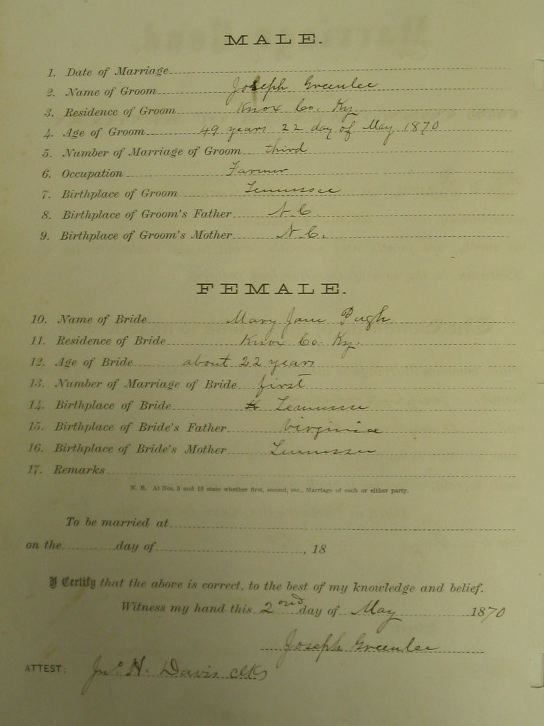 MALE.
1. Date of Marriage
2. Name of Groom Joseph Greenlee
3. Residence of Groom Knox Co. Ky.
4. Age of Groom 49 years 22 day of May 1870
5. Number of Marriage of Groom third
6. Occupation Farmer
7. Birthplace of Groom Tennessee
8. Birthplace of Groom's Father N. C.
9. Birthplace of Groom's Mother N. C.
FEMALE.
10. Name of Bride Mary Jane Pugh
11. Residence of Bride Knox Co. Ky.
12. Age of Bride about 22 years
13. Number of Marriage of Bride first
14. Birthplace of Bride Tennessee
15. Birthplace of Bride's Father Verginia
16. Birthplace of Bride's Mother Tennessee
17. Remarks
N. B. At Nos. 5 and 13 state whether first, second, etc., Marriage of each or either party.
To be married at
on the day of , 18
I Certify that the above is correct, to the best of my knowledge and belief.
Witness my hand this 2nd day of May 1870
Joseph Greenlee
ATTEST: Jno. H. Davis clk